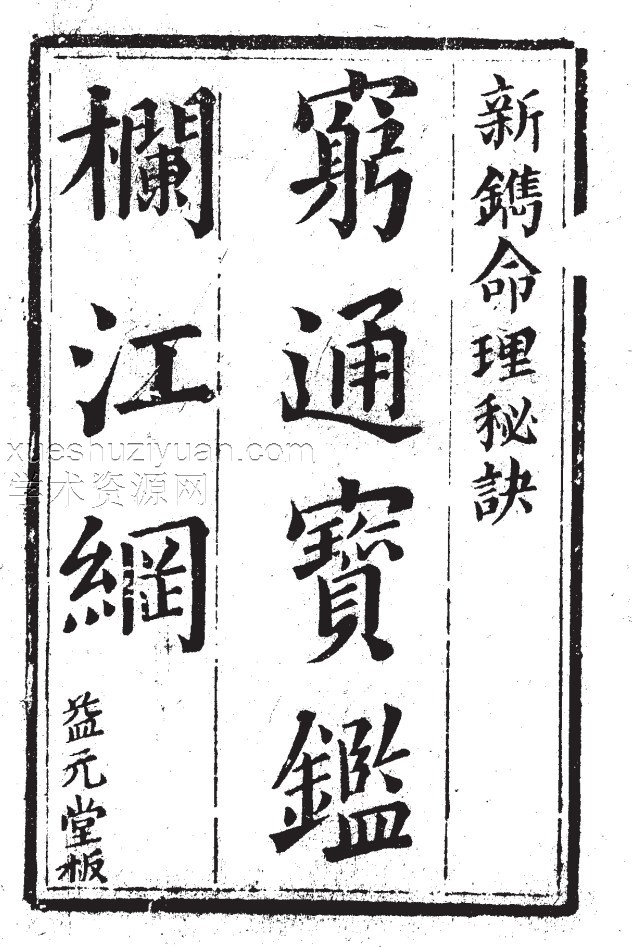 新鐫命理秘訣
窮通寶鑑
欄江網
益元堂板
xueshuziyuan.com
学术资源网